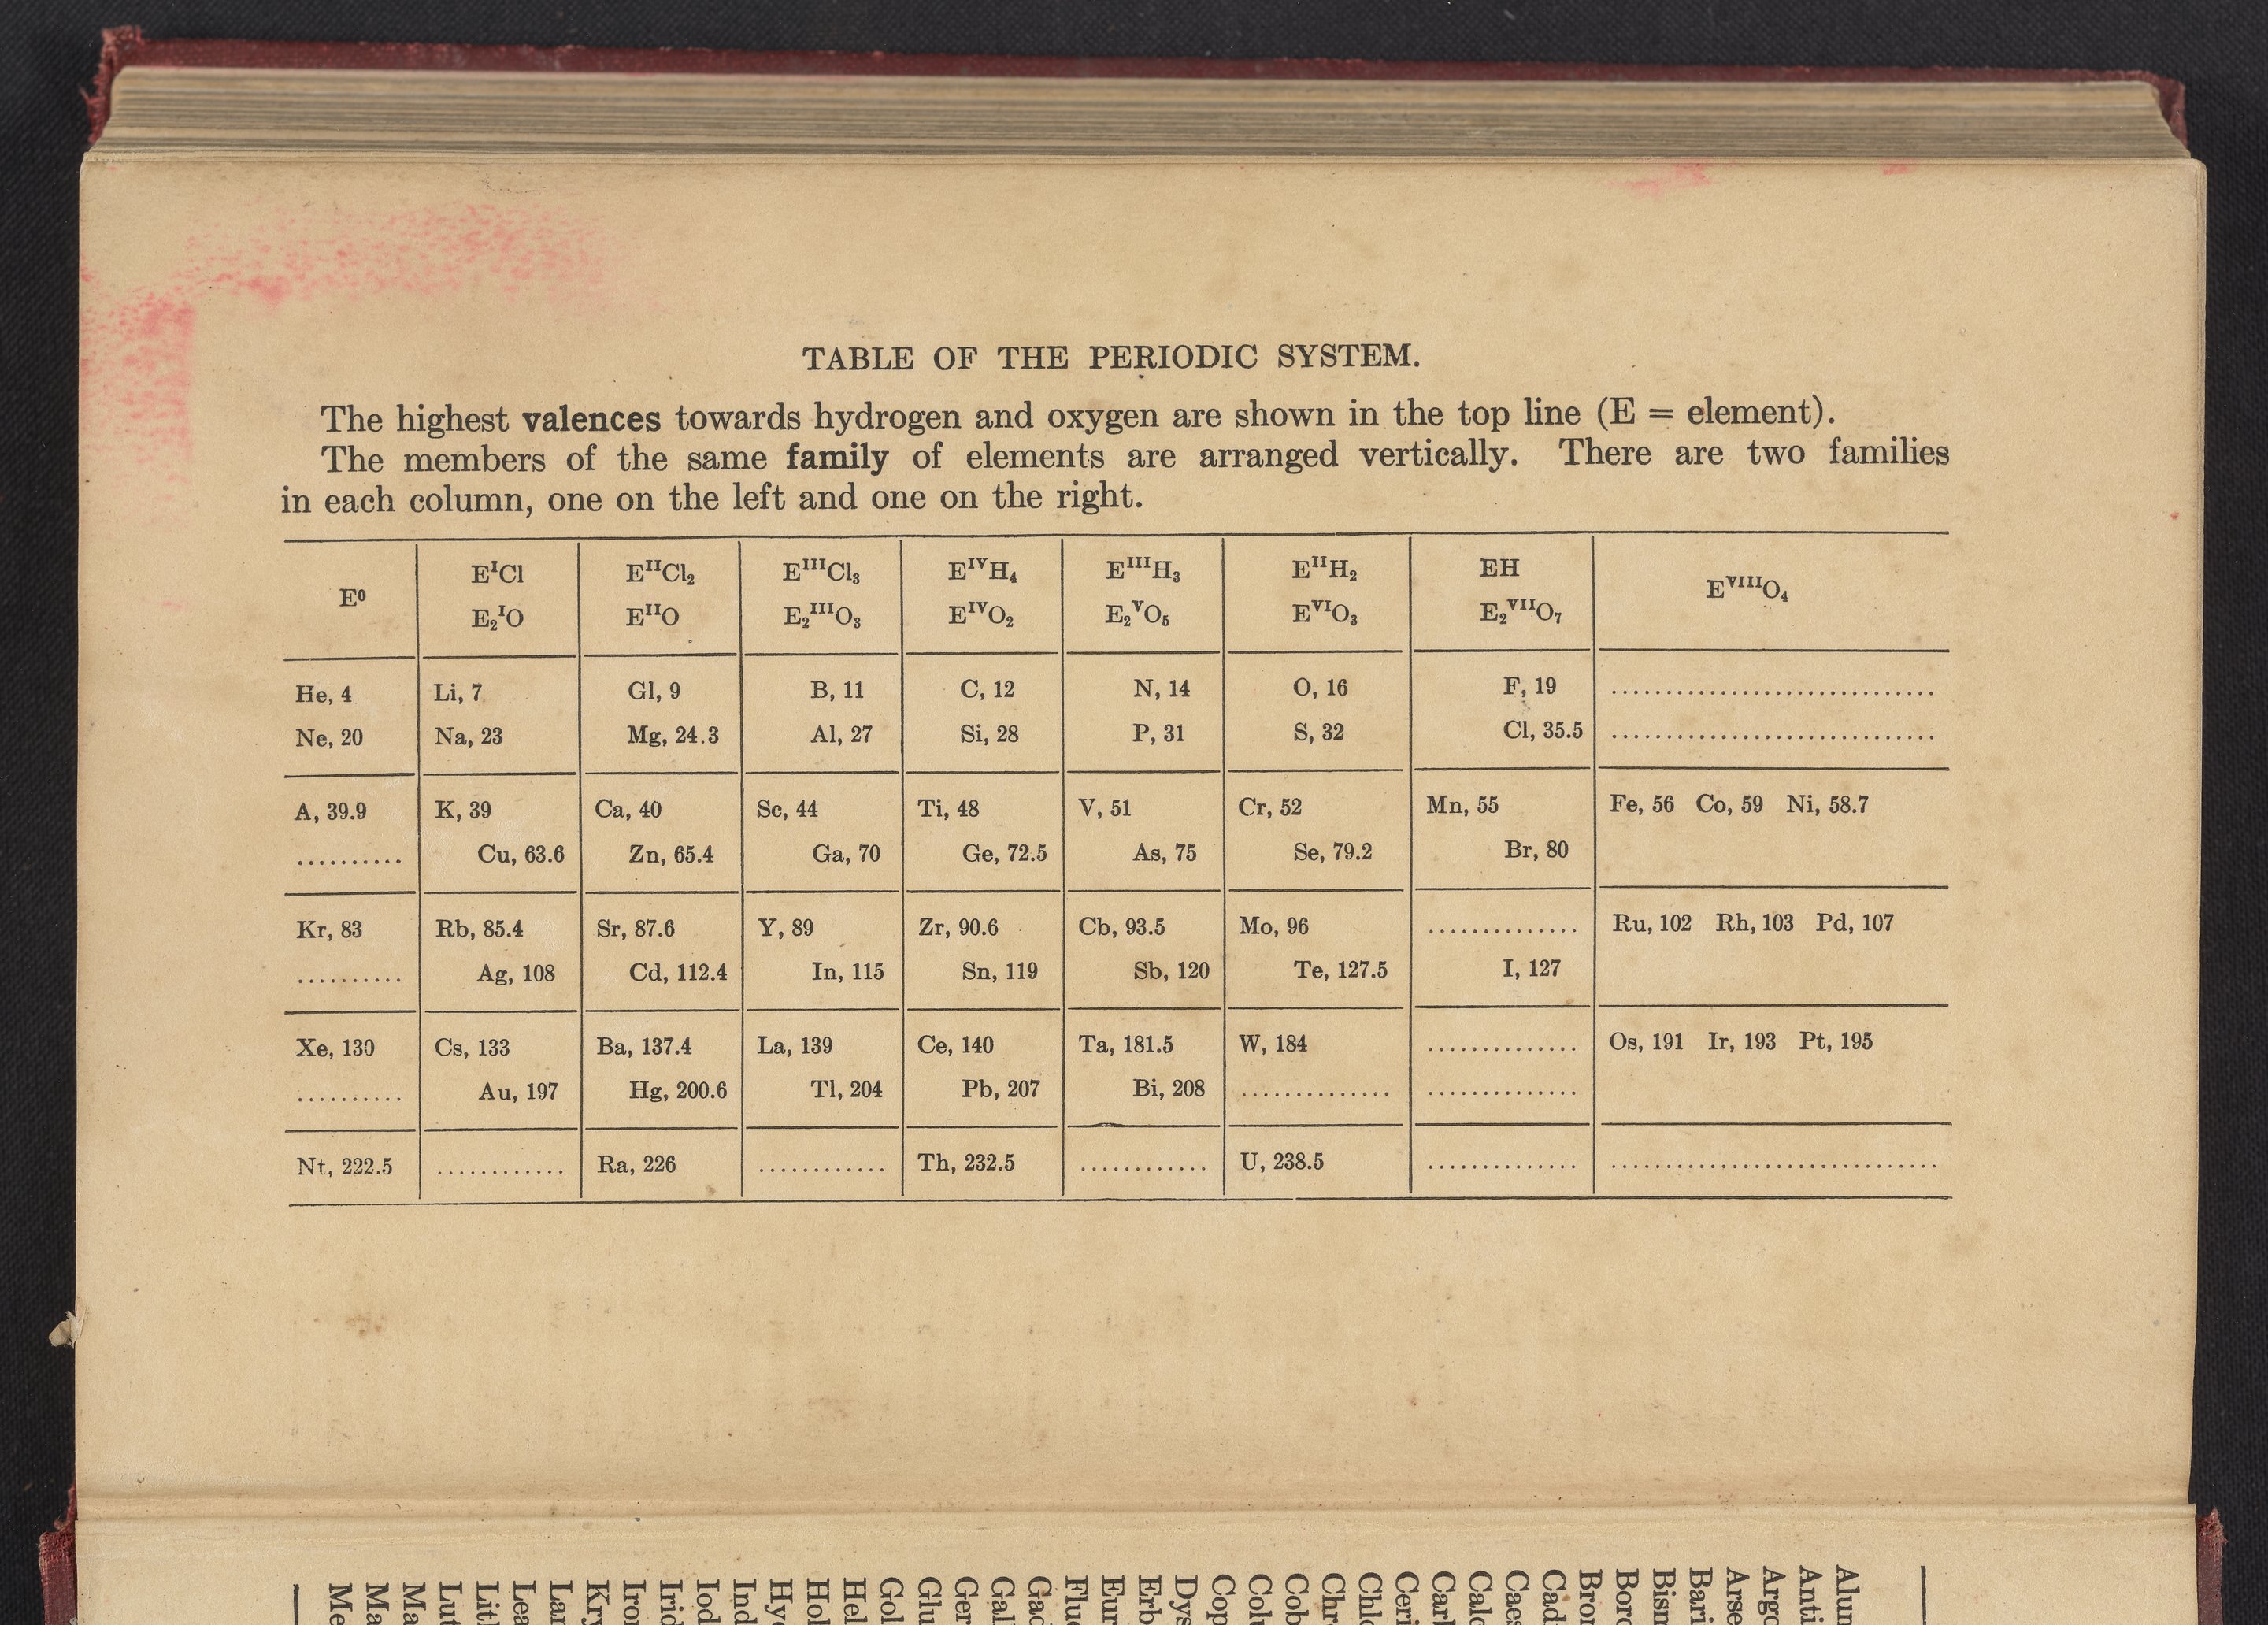 TABLE OF THE PERIODIC SYSTEM.
The highest valences towards hydrogen and oxygen are shown in the top line (E = element).
The members of the same family of elements are arranged vertically. There are two families
in each column, one on the left and one on the right.
E⁰ EᴵCl EᴵᴵCl₂ EᴵᴵᴵCl₃ EᴵⱽH₄ EᴵᴵᴵH₃ EᴵᴵH₂ EH EⱽᴵᴵᴵO₄
E₂ᴵO EᴵᴵO E₂ᴵᴵᴵO₃ EᴵⱽO₂ E₂ⱽO₅ EⱽᴵO₃ E₂ⱽᴵᴵO₇
He, 4 Li, 7 Gl, 9 B, 11 C, 12 N, 14 O, 16 F, 19 ..............................
Ne, 20 Na, 23 Mg, 24.3 Al, 27 Si, 28 P, 31 S, 32 Cl, 35.5 ..............................
A, 39.9 K, 39 Ca, 40 Sc, 44 Ti, 48 V, 51 Cr, 52 Mn, 55 Fe, 56 Co, 59 Ni, 58.7
.......... Cu, 63.6 Zn, 65.4 Ga, 70 Ge, 72.5 As, 75 Se, 79.2 Br, 80
Kr, 83 Rb, 85.4 Sr, 87.6 Y, 89 Zr, 90.6 Cb, 93.5 Mo, 96 .............. Ru, 102 Rh, 103 Pd, 107
.......... Ag, 108 Cd, 112.4 In, 115 Sn, 119 Sb, 120 Te, 127.5 I, 127
Xe, 130 Cs, 133 Ba, 137.4 La, 139 Ce, 140 Ta, 181.5 W, 184 .............. Os, 191 Ir, 193 Pt, 195
.......... Au, 197 Hg, 200.6 Tl, 204 Pb, 207 Bi, 208 .............. ..............
Nt, 222.5 ............ Ra, 226 ............ Th, 232.5 ............ U, 238.5 .............. ..............................
Alun
Anti
Argo
Arse
Bari
Bism
Boro
Bron
Cad
Caes
Calc
Carl
Ceri
Chlo
Chr
Cob
Colu
Cop
Dys
Erb
Eur
Fluo
Gad
Gall
Ger
Glu
Gol
Hel
Hol
Hyd
Ind
Iod
Irid
Iron
Kry
Lan
Lea
Lith
Lut
Ma
Ma
Me